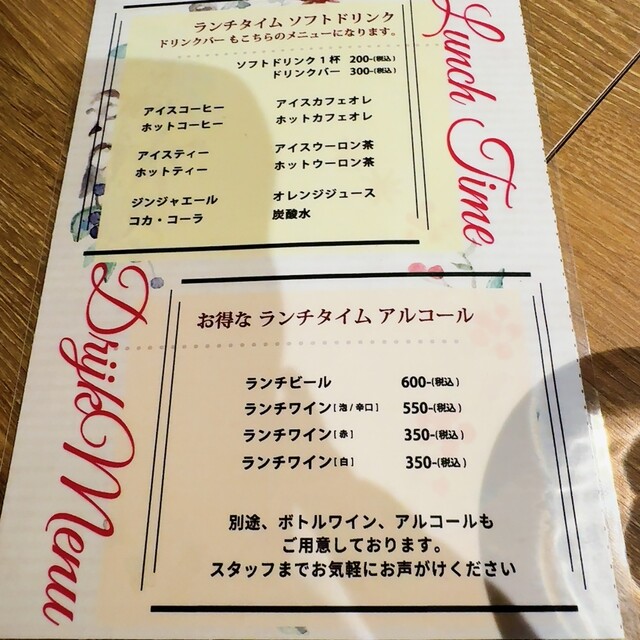 Lunch Time
ランチタイム ソフトドリンク
ドリンクバー もこちらのメニューになります。
ソフトドリンク1杯 200-(税込)
ドリンクバー 300-(税込)
アイスコーヒー アイスカフェオレ
ホットコーヒー ホットカフェオレ
アイスティー アイスウーロン茶
ホットティー ホットウーロン茶
ジンジャエール オレンジジュース
コカ・コーラ 炭酸水
Drijk Menu
お得な ランチタイム アルコール
ランチビール 600-(税込)
ランチワイン [ 泡 / 辛口 ] 550-(税込)
ランチワイン [ 赤 ] 350-(税込)
ランチワイン [ 白 ] 350-(税込)
別途、ボトルワイン、アルコールも
ご用意しております。
スタッフまでお気軽にお声がけください